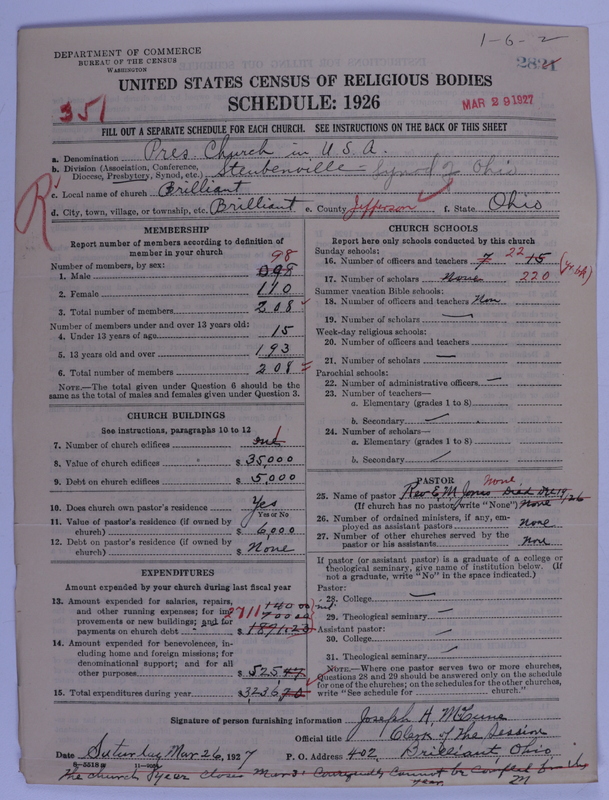 1-6-2
DEPARTMENT OF COMMERCE
BUREAU OF THE CENSUS
WASHINGTON
UNITED STATES CENSUS OF RELIGIOUS BODIES
SCHEDULE: 1926
351
MAR 29 1927
FILL OUT A SEPARATE SCHEDULE FOR EACH CHURCH. SEE INSTRUCTIONS ON THE BACK OF THIS SHEET
a. Denomination Pres. Church in U.S.A.
b. Division (Association, Conference, Diocese, Presbytery, Synod, etc.) Steubenville - Synod of Ohio
c. Local name of church Brilliant
R
d. City, town, village, or township, etc. Brilliant e. County Jefferson f. State Ohio
MEMBERSHIP
Report number of members according to definition of
member in your church
98
Number of members, by sex:
1. Male 098
2. Female 110
3. Total number of members 208
Number of members under and over 13 years old:
4. Under 13 years of age 15
5. 13 years old and over 193
6. Total number of members 208
NOTE.—The total given under Question 6 should be
same as the total of males and females given under Question 3.
CHURCH BUILDINGS
See instructions, paragraphs 10 to 12
7. Number of church edifices one
8. Value of church edifices $ 35,000
9. Debt on church edifices $ 5,000
10. Does church own pastor's residence Yes
Yes or No
11. Value of pastor's residence (if owned by
church) $ 6,000
12. Debt on pastor's residence (if owned by
church) $ None
EXPENDITURES
Amount expended by your church during last fiscal year
13. Amount expended for salaries, repairs,
and other running expenses; for im-
provements or new buildings; and for
payments on church debt $ 1891.23
2711
14. Amount expended for benevolences, in-
cluding home and foreign missions; for
denominational support; and for all
other purposes $ 525.47
15. Total expenditures during year $ 3236.70
CHURCH SCHOOLS
Report here only schools conducted by this church
Sunday schools:
16. Number of officers and teachers 7 22 15
17. Number of scholars None 220
Summer vacation Bible schools:
18. Number of officers and teachers Non
19. Number of scholars
Week-day religious schools:
20. Number of officers and teachers
21. Number of scholars
Parochial schools:
22. Number of administrative officers
23. Number of teachers—
a. Elementary (grades 1 to 8)
b. Secondary
24. Number of scholars—
a. Elementary (grades 1 to 8)
b. Secondary
PASTOR
None
25. Name of pastor Rev E. M. Jones Died Dec 19/26
(If church has no pastor, write "None") None
26. Number of ordained ministers, if any, em-
ployed as assistant pastors None
27. Number of other churches served by the
pastor or his assistants None
If pastor (or assistant pastor) is a graduate of a college or
theological seminary, give name of institution below. (If
not a graduate, write "No" in the space indicated.)
Pastor:
28. College
29. Theological seminary
Assistant pastor:
30. College
31. Theological seminary
NOTE.—Where one pastor serves two or more churches,
Questions 28 and 29 should be answered only on the schedule
for one of the churches; on the schedules for the other churches,
write "See schedule for church."
Signature of person furnishing information Joseph H. McCune
Official title Clerk of the Session
Date Saturday Mar 26, 1927 P. O. Address 402, Brilliant, Ohio
The church year closes Mar 31 Consequently Cannot be Compiled for this
year